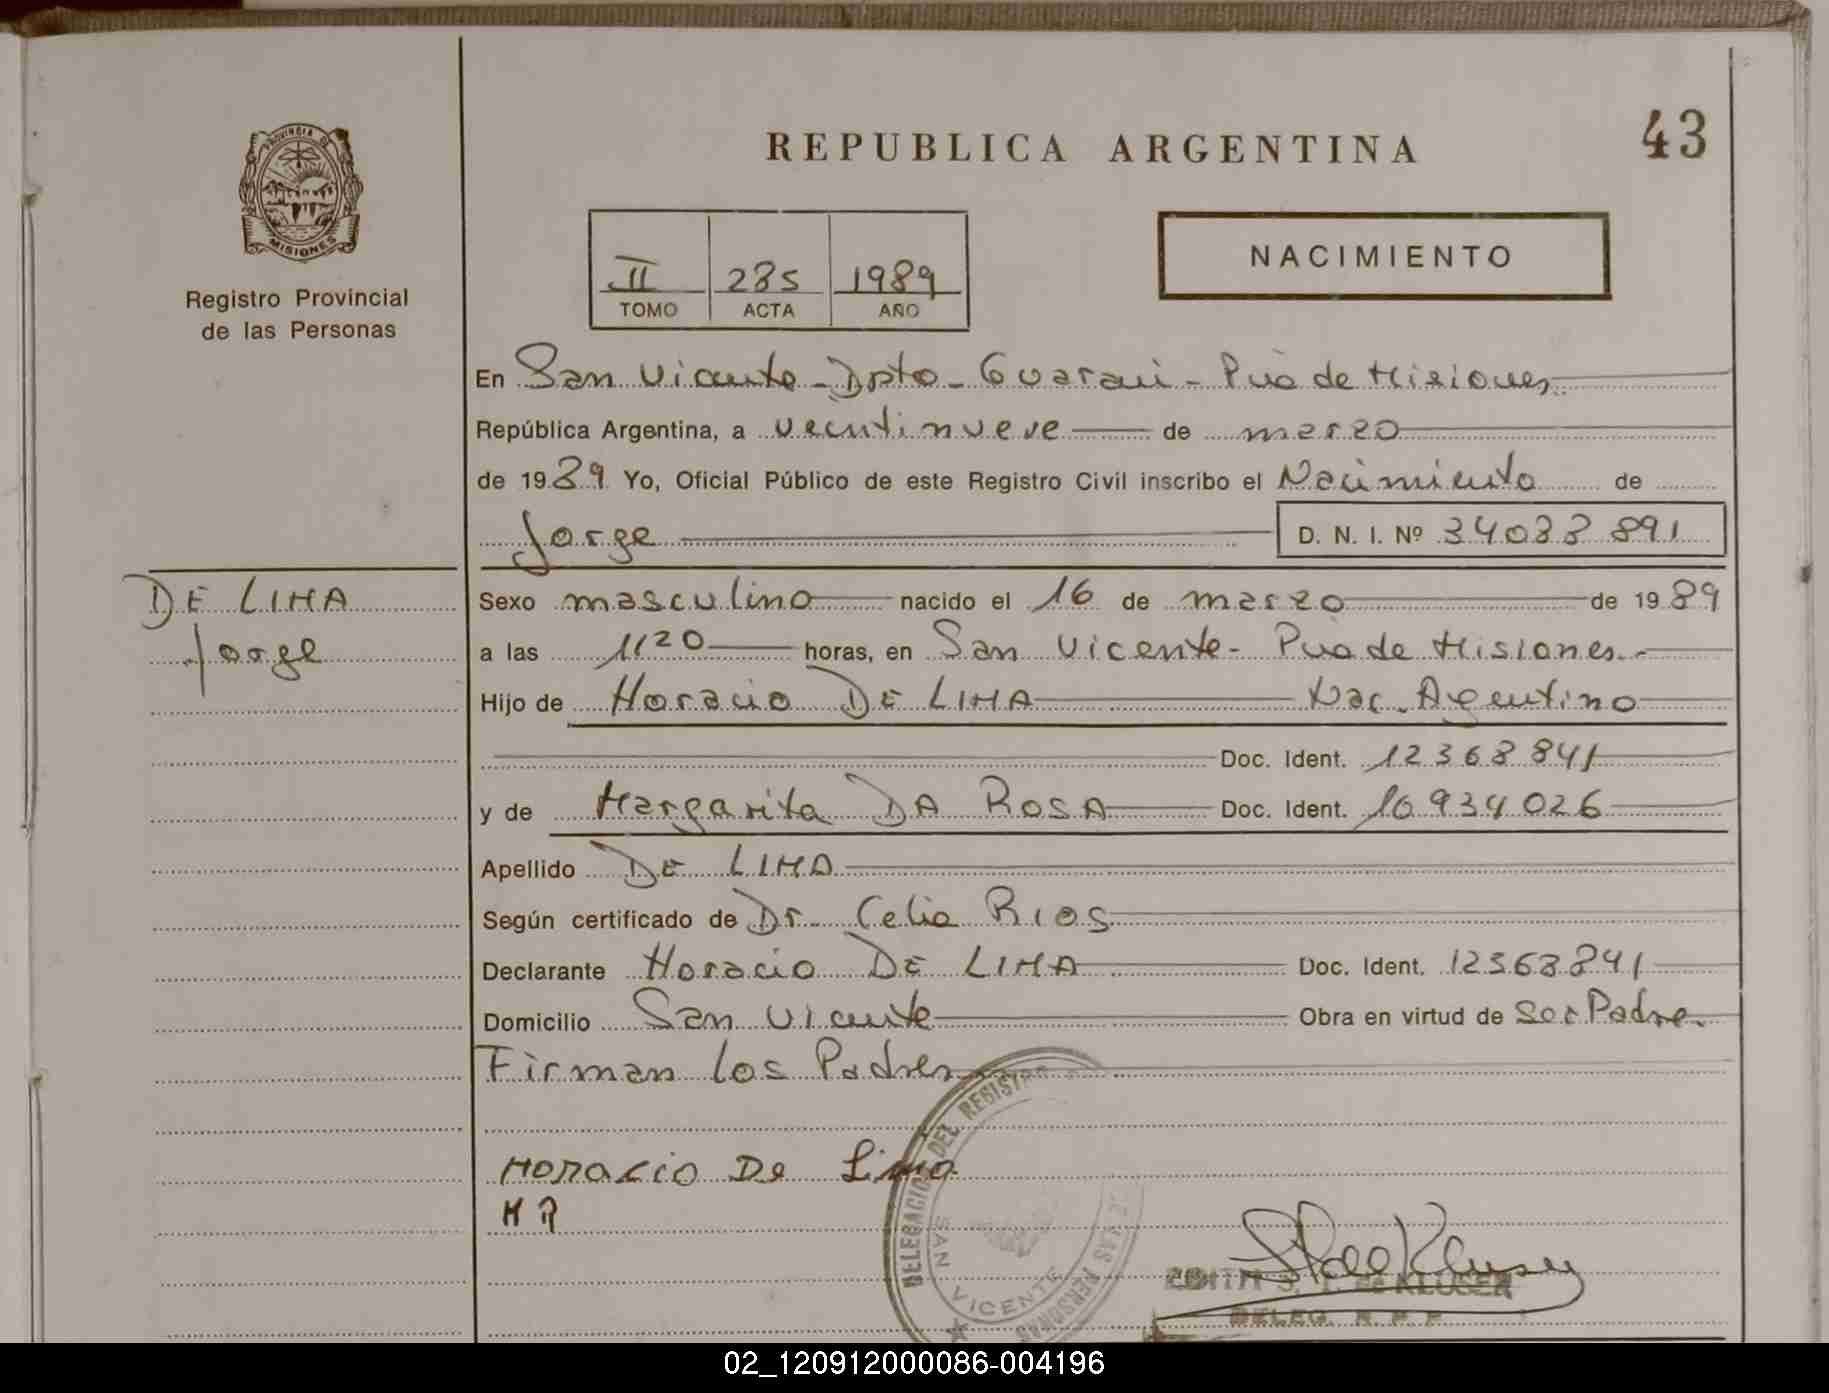 PROVINCIA DE
MISIONES
Registro Provincial
de las Personas
DE LIMA
Jorge
REPUBLICA ARGENTINA
43
II 285 1989
TOMO ACTA AÑO
NACIMIENTO
En San Vicente - Dpto - Guarani - Pcia de Misiones
República Argentina, a veintinueve de marzo
de 1989 Yo, Oficial Público de este Registro Civil inscribo el Nacimiento de
Jorge D. N. I. Nº 34088891
Sexo masculino nacido el 16 de marzo de 1989
a las 11 20 horas, en San Vicente - Pcia de Misiones.-
Hijo de Horacio DE LIMA Nac. Agentino
Doc. Ident. 12368841
y de Margarita DA ROSA Doc. Ident. 10934026
Apellido DE LIMA
Según certificado de Dr. Celia RIOS
Declarante Horacio DE LIMA Doc. Ident. 12368841
Domicilio San Vicente Obra en virtud de ser Padre.
Firman los Padres
HORACIO De Lima
M R
DELEGACION DEL REGISTRO DE LAS PERSONAS
SAN VICENTE
EDITH S. T. de KLUSER
DELEG. R. P. P.
02_120912000086-004196